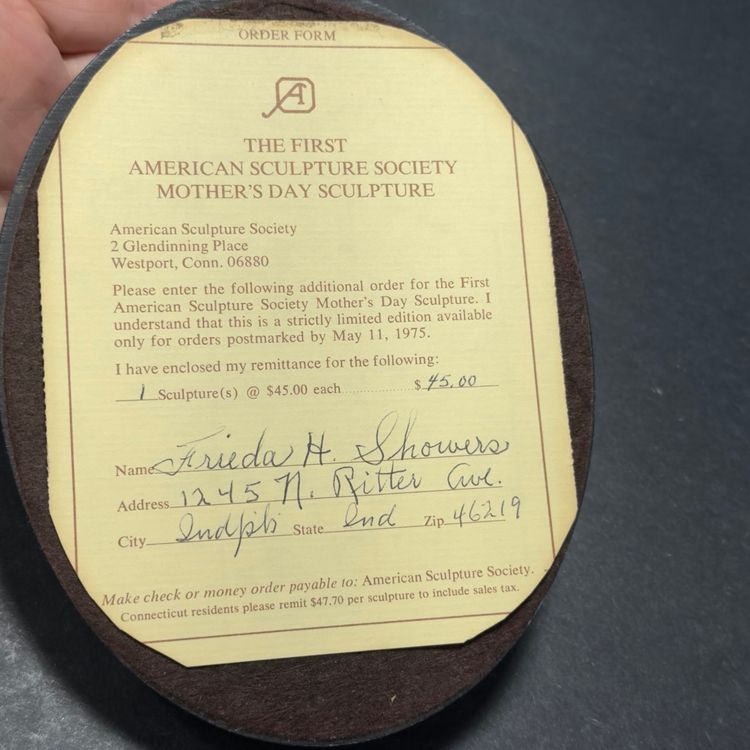 ORDER FORM
A
THE FIRST
AMERICAN SCULPTURE SOCIETY
MOTHER'S DAY SCULPTURE
American Sculpture Society
2 Glendinning Place
Westport, Conn. 06880
Please enter the following additional order for the First
American Sculpture Society Mother's Day Sculpture. I
understand that this is a strictly limited edition available
only for orders postmarked by May 11, 1975.
I have enclosed my remittance for the following:
1 Sculpture(s) @ $45.00 each $ 45.00
Name Frieda H. Showers
Address 1245 N. Ritter Ave.
City Indpls State Ind Zip 46219
Make check or money order payable to: American Sculpture Society.
Connecticut residents please remit $47.70 per sculpture to include sales tax.